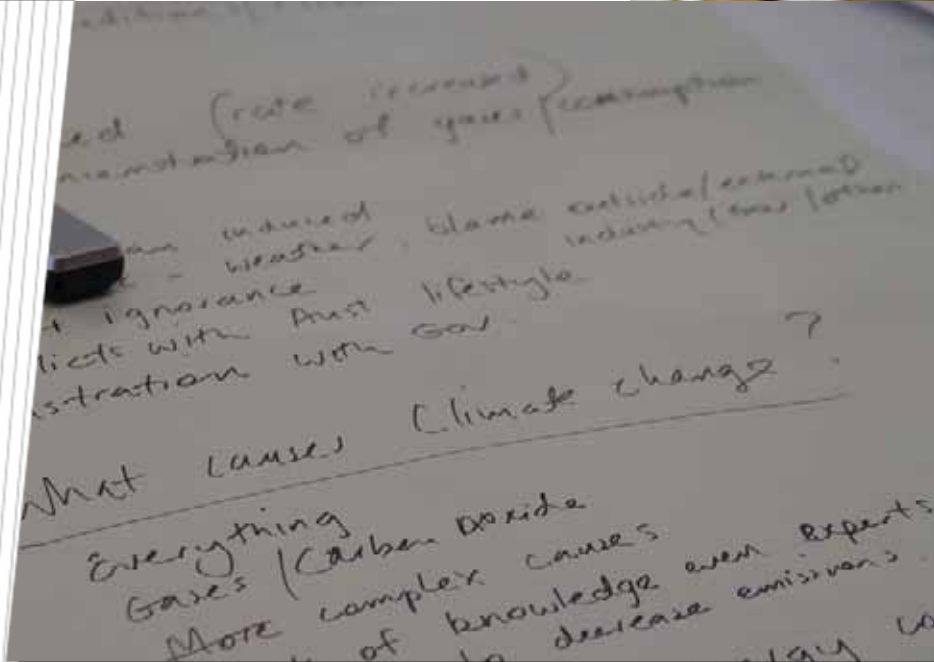 (rate increased)
of gases / consumption
induced
- weather, blame outside / external
ignorance industry / / other
with Aust lifestyle
istration with Gov.
What causes Climate change?
Everything
Gases / Carbon Dioxide
More complex causes
of knowledge even experts
to decrease emissions.